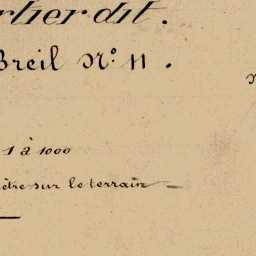 rtier dit.
Breil N° 11.
1 à 1000
ètre sur le terrain